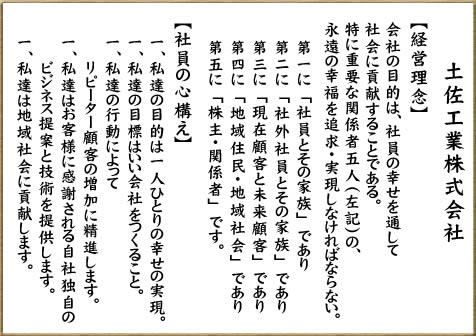 土佐工業株式会社
【経営理念】
会社の目的は、社員の幸せを通して
社会に貢献することである。
特に重要な関係者五人(左記)の、
永遠の幸福を追求・実現しなければならない。
第一に「社員とその家族」であり
第二に「社外社員とその家族」であり
第三に「現在顧客と未来顧客」であり
第四に「地域住民・地域社会」であり
第五に「株主・関係者」です。
【社員の心構え】
一、私達の目的は一人ひとりの幸せの実現。
一、私達の目標はいい会社をつくること。
一、私達の行動によって
リピーター顧客の増加に精進します。
一、私達はお客様に感謝される自社独自の
ビジネス提案と技術を提供します。
一、私達は地域社会に貢献します。